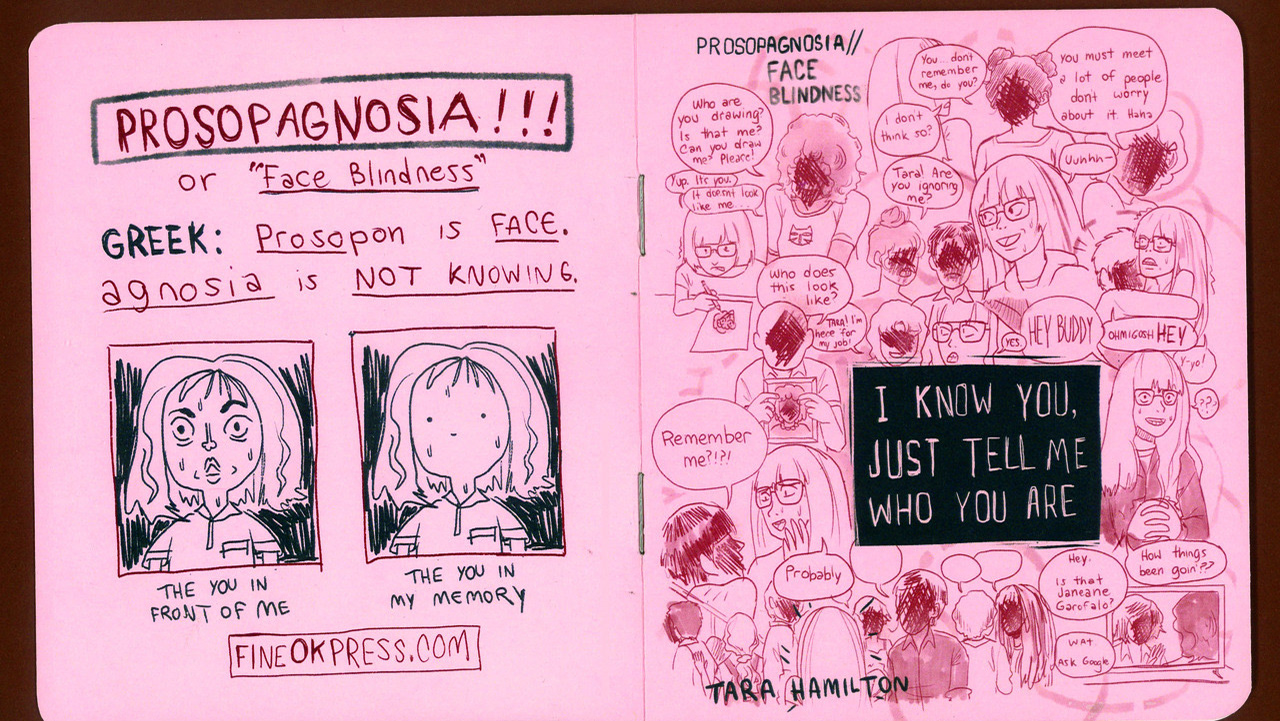 PROSOPAGNOSIA!!!
or "Face Blindness"
GREEK: Prosopon is FACE.
agnosia is NOT KNOWING.
THE YOU IN
FRONT OF ME
THE YOU IN
MY MEMORY
FINEOKPRESS.COM
PROSOPAGNOSIA//
FACE
BLINDNESS
Who are
you drawing?
Is that me?
Can you draw
me? Please!
Yup. It's you.
It doesnt look
like me...
You...dont
remember
me, do you?
I don't
think so?
you must meet
a lot of people
dont worry
about it. Haha
Uuhhh-
Tara! Are
you ignoring
me?
Who does
this look
like?
TARA! I'm
here for
my job!
YES.
HEY BUDDY
OHMIGOSH HEY
Y-yo!
??
I KNOW YOU,
JUST TELL ME
WHO YOU ARE
Remember
me?!?!
Probably
Hey.
Is that
Janeane
Garofalo?
How things
been goin'??
WAT
ASK Google
TARA HAMILTON